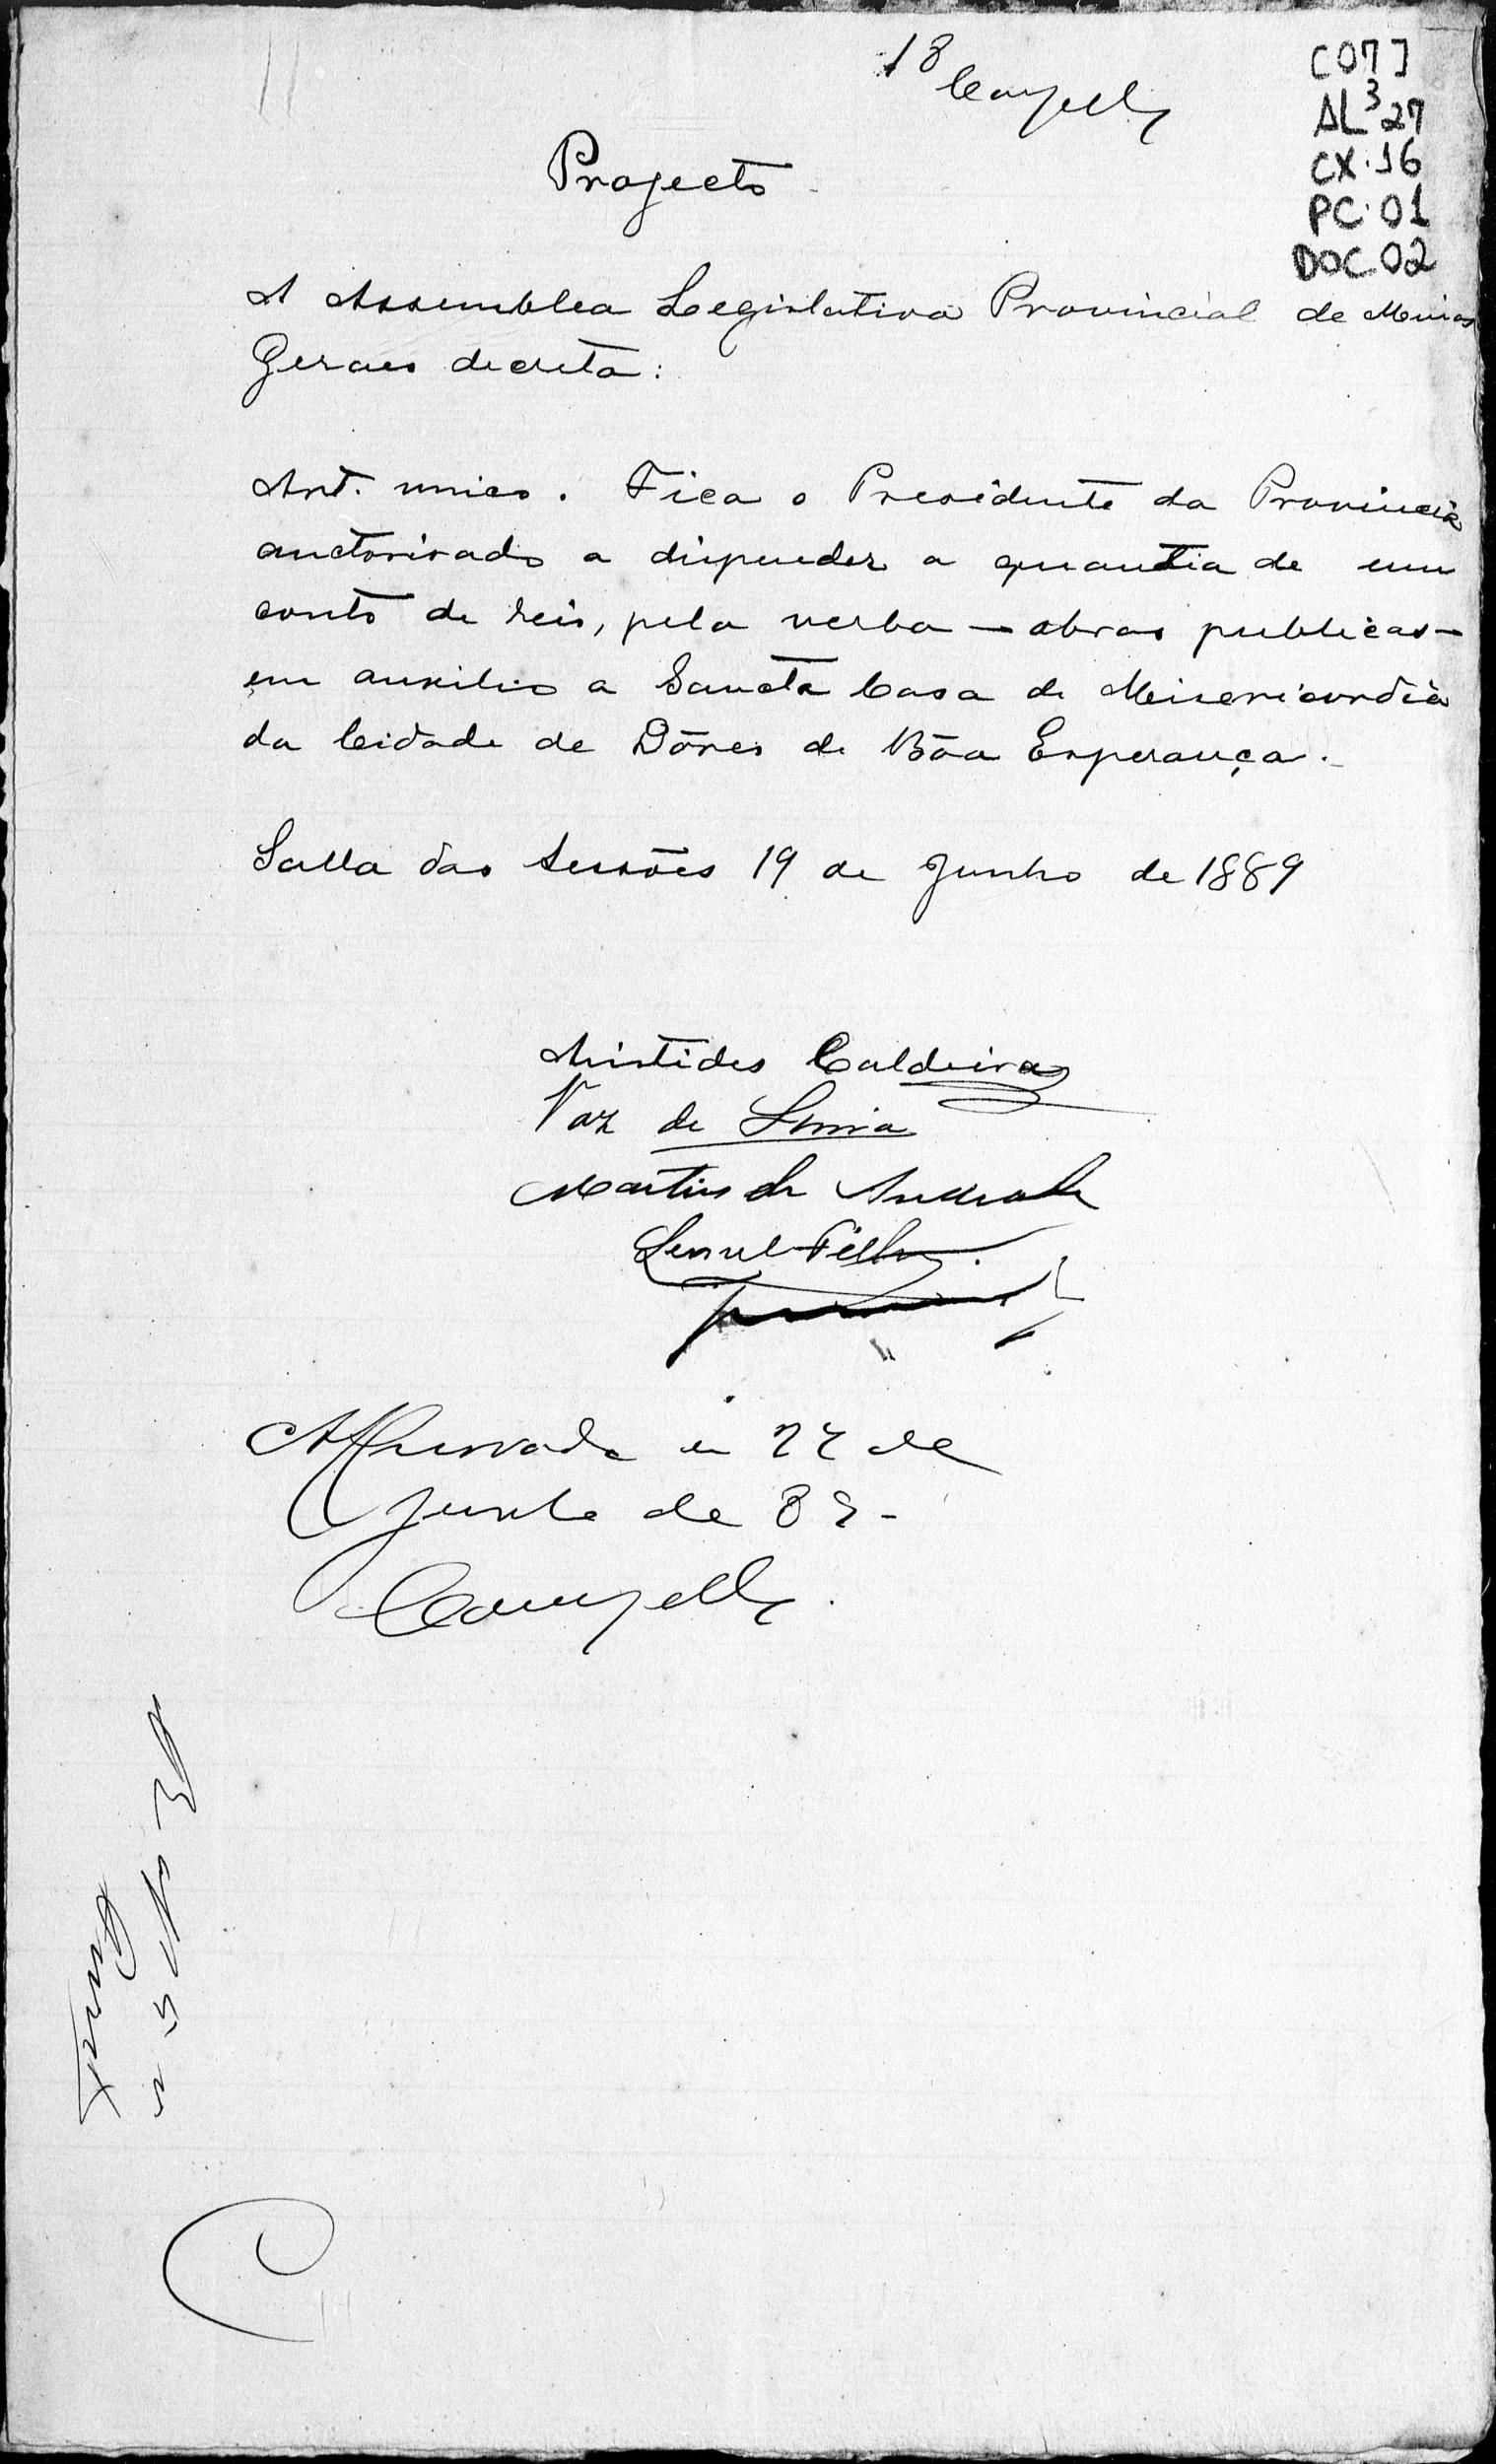 18 Campello
[07]
AL³27
CX.16
PC.01
DOC.02
Projecto
A Assemblea Legislativa Provincial de Minas
Geraes decreta:
Art. unico. Fica o Presidente da Provincia
auctorisado a dispender a quantia de um
conto de reis, pela verba — obras publicas —
em auxilio a Sancta Casa de Misericordia
da Cidade de Dôres de Bôa Esperança.
Salla das Sessões 19 de Junho de 1889
Aristides Caldeira
Vaz de Lima
Martins de Andrade
Lemel Filho.
em 22 de
Junho de 89-
Campello.